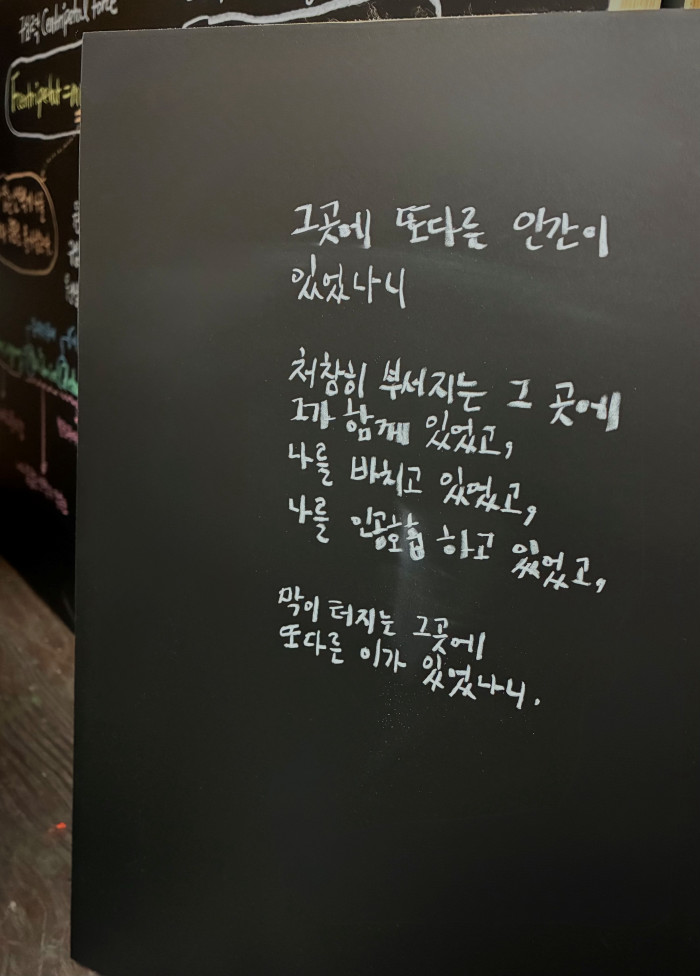 구심력 Centripetal force
Fcentripetal = m
그곳에 또다른 인간이
있었나니
처참히 부서지는 그 곳에
그가 함께 있었고,
나를 바치고 있었고,
나를 인공호흡 하고 있었고,
막이 터지는 그곳에
또다른 이가 있었나니.